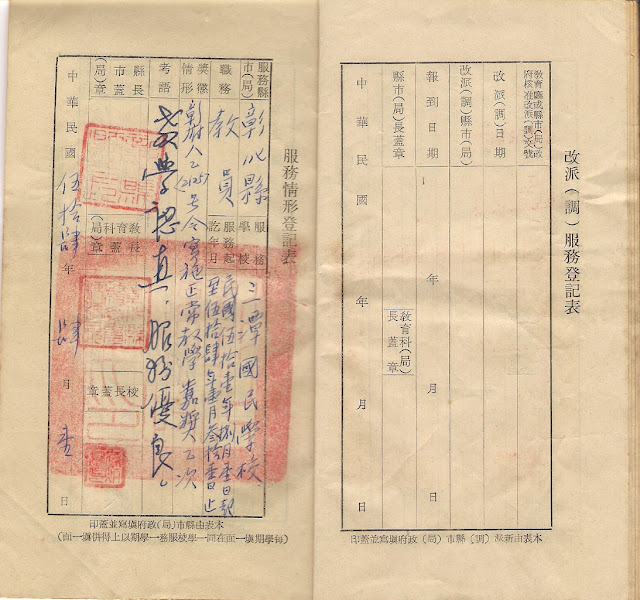 改派(調)服務登記表
教育廳或縣市(局)政府核准改派(調)文號
改派(調)日期
改派(調)縣市(局)
報到日期 年 月 日
縣市(局)長蓋章 教育科(局)長蓋章
中華民國 年 月 日
本表由新派(調)縣市(局)政府填寫並蓋印
服務情形登記表
服務縣市(局) 彰化縣 服務學校 三潭國民學校
職務 教員 服務起訖年月 民國伍拾壹年捌月壹日起
至伍拾肆年壹月叁拾壹日止
獎懲情形 彰府人乙(2125)號令實施正常教學嘉獎乙次
考語 教學認真,服務優良。
縣市(局)長蓋章 教育科(局)長蓋章 校長蓋章
中華民國伍拾肆年肆月壹日
本表由縣市(局)政府填寫並蓋印
(每學期填一面在同一學校服務一學期以上得併填一面)